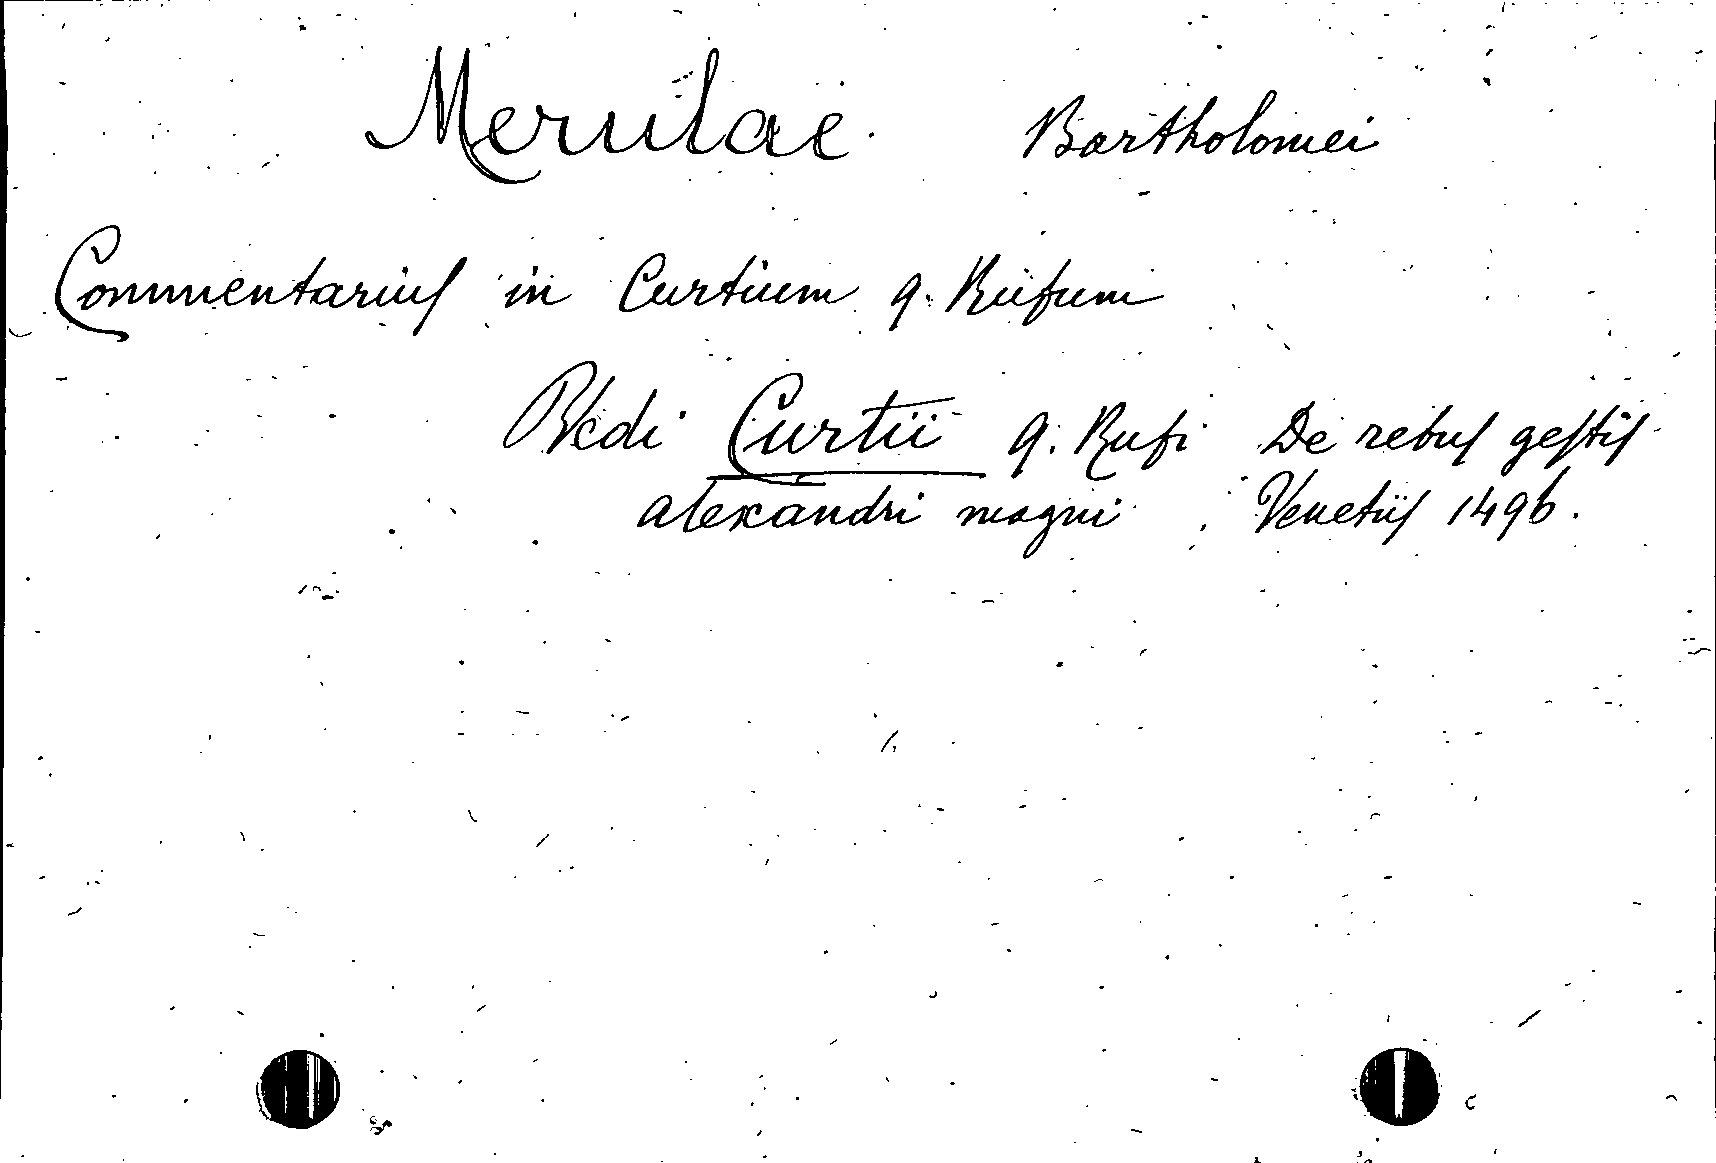 Merulae Bartholomei
Commentarius in Curtium q. Rufum
Vedi Curtii q. Rufi De rebus gestis
alexandri magni Venetiis 1496.